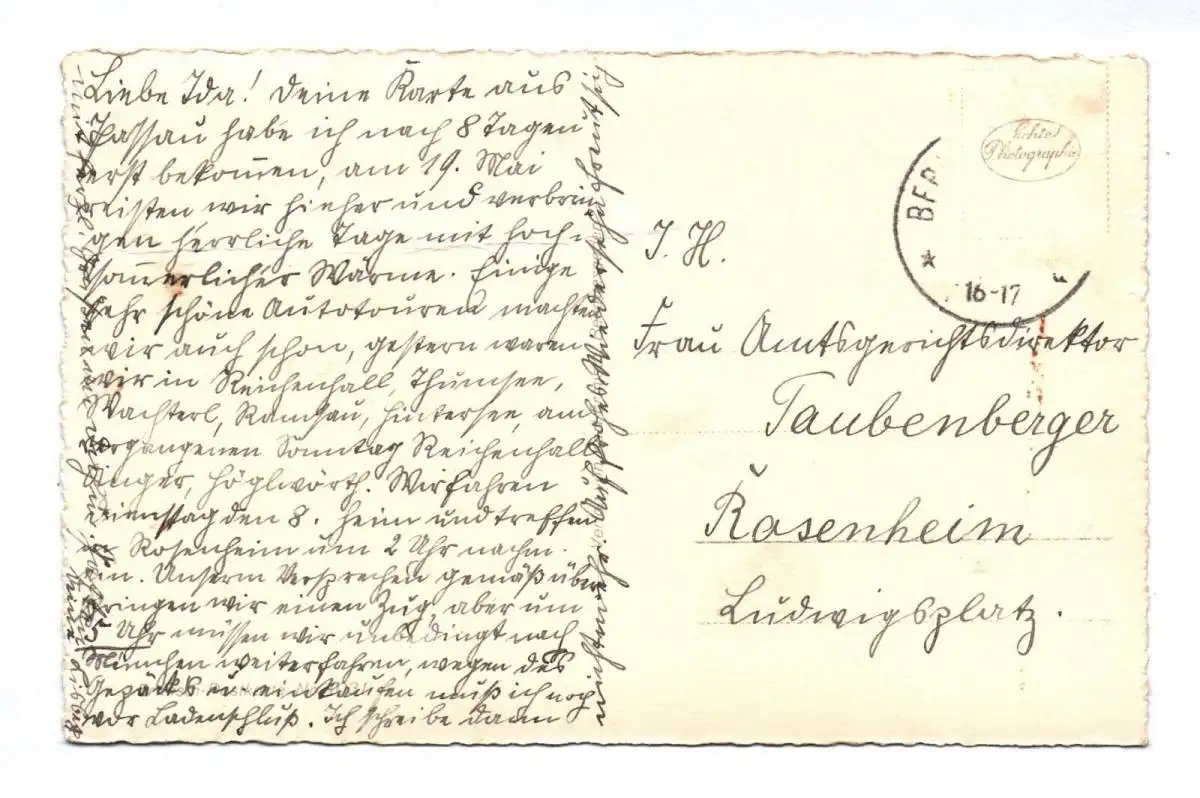 Liebe Ida! Deine Karte aus
Passau habe ich nach 8 Tagen
erst bekommen, am 19. Mai
reisten wir hieher und verbrin
gen herrliche Tage mit hoch-
sommerlicher Wärme. Einige
sehr schöne Autotouren machten
wir auch schon, gestern waren
wir in Reichenhall, Thumsee,
Wachterl, Ramsau, Hintersee, am
vergangenen Sonntag Reichenhall
Höglwörth. Wir fahren
Dienstag den 8. heim und treffen
in Rosenheim um 2 Uhr nachm.
ein. Unserm Versprechen gemäß über
bringen wir einen Zug, aber um
Uhr müssen wir unbedingt nach
München weiterfahren, wegen des
Gepäcks u einkaufen muß ich noch
vor Ladenschluß. Ich schreibe dann
nicht mehr. Auf frohes Wiedersehn freut sich
Echte
Photographie
BER
16-17
I. H.
Frau Amtsgerichtsdirektor
Taubenberger
Rosenheim
Ludwigsplatz.